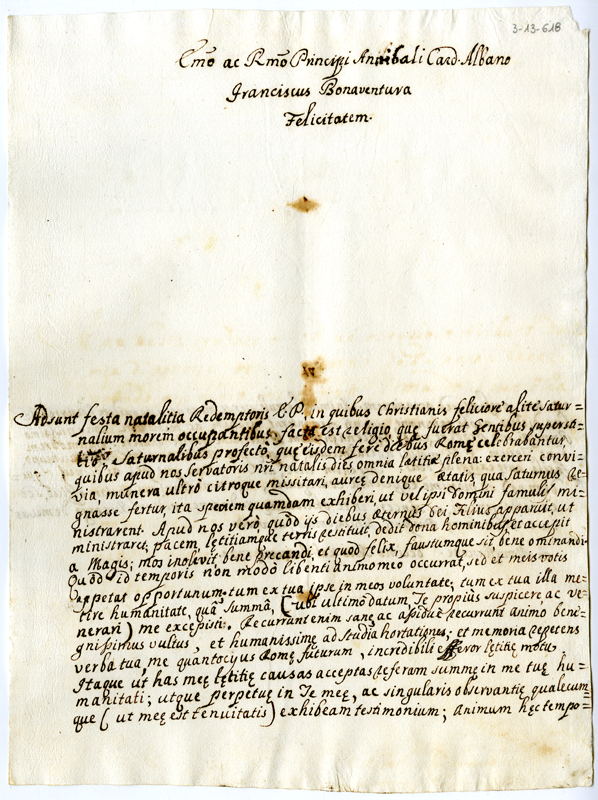 3-13-618
Emo ac Rmo Principi Annibali Card. Albano
Franciscus Bonaventura
Felicitatem.
Adsunt festa natalitia Redemptoris E.P. in quibus Christianis feliciore alite Satur=
nalium morem occupantibus facta est religio que fuerat gentibus supersti=
tio. Saturnalibus profecto, quę eisdem fere diebus Romę celebrabantur,
quibus apud nos servatoris nri natalis dies omnia lętitię plena: exerceri convi=
via, munera ultrò citroque missitari, aureę denique ætatis, qua Saturnus re=
gnasse fertur, ita speciem quamdam exhiberi, ut vel ipsi domini famulis mi=
nistrarent. Apud nos verò quòd ijs diebus æternus Dei Filius apparuit, ut
ministraret, pacem, lętitiamque terris restituit, dedit dona hominibus, et accepit
a Magis; mos inolevit bene precandi, et quod felix, faustumque sit, bene ominandi.
Quòd id temporis non modò libenti animo meo occurrat, sed et meis votis
appetat opportunum tum ex tua ipse in meos voluntate, tum ex tua illa me=
tire humanitate, quâ summâ, (ubi ultimò datum Te propiùs suspicere, ac ve=
nerari) me excepisti. Recurrunt enim sanè, ac assiduè recurrunt animo beni=
gnissimus vultus, et humanissimę ad studia hortationes; et memoria repetens
verba tua, me quantocyus Romę futurum, incredibili efferor lętitię motu.
Itaque ut has meę lętitię causas acceptas referam summę in me tuę hu=
manitati; utque perpetuę in Te meę, ac singularis observantię qualecum=
que (ut meę est tenuitatis) exhibeam testimonium; animum hęc tempo=